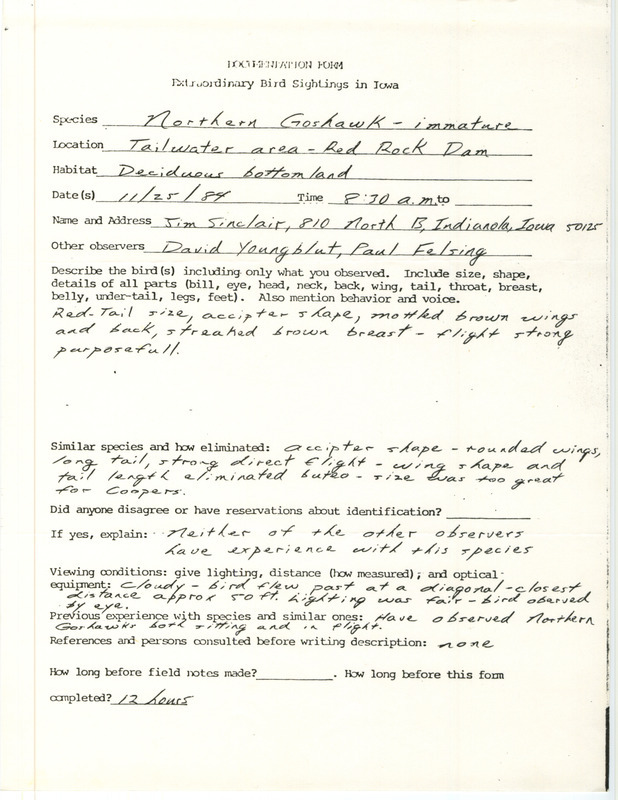 DOCUMENTATION FORM
Extraordinary Bird Sightings in Iowa
Species Northern Goshawk - immature
Location Tailwater area - Red Rock Dam
Habitat Deciduous bottomland
Date(s) 11/25/84 Time 8:30 a.m. to
Name and Address Jim Sinclair, 810 North B, Indianola, Iowa 50125
Other observers David Youngblut, Paul Felsing
Describe the bird(s) including only what you observed. Include size, shape,
details of all parts (bill, eye, head, neck, back, wing, tail, throat, breast,
belly, under-tail, legs, feet). Also mention behavior and voice.
Red-Tail size, accipter shape, mottled brown wings
and back, streaked brown breast - flight strong
purposefull.
Similar species and how eliminated: accipter shape - rounded wings,
long tail, strong direct flight - wing shape and
tail length eliminated buteo - size was too great
for Coopers.
Did anyone disagree or have reservations about identification?
If yes, explain: Neither of the other observers
have experience with this species
Viewing conditions: give lighting, distance (how measured); and optical
equipment: Cloudy - bird flew past at a diagonal - closest
distance approx 50 ft. Lighting was fair - bird oberved
by eye.
Previous experience with species and similar ones: Have observed Northern
Goshawks both sitting and in flight.
References and persons consulted before writing description: none
How long before field notes made? . How long before this form
completed? 12 hours